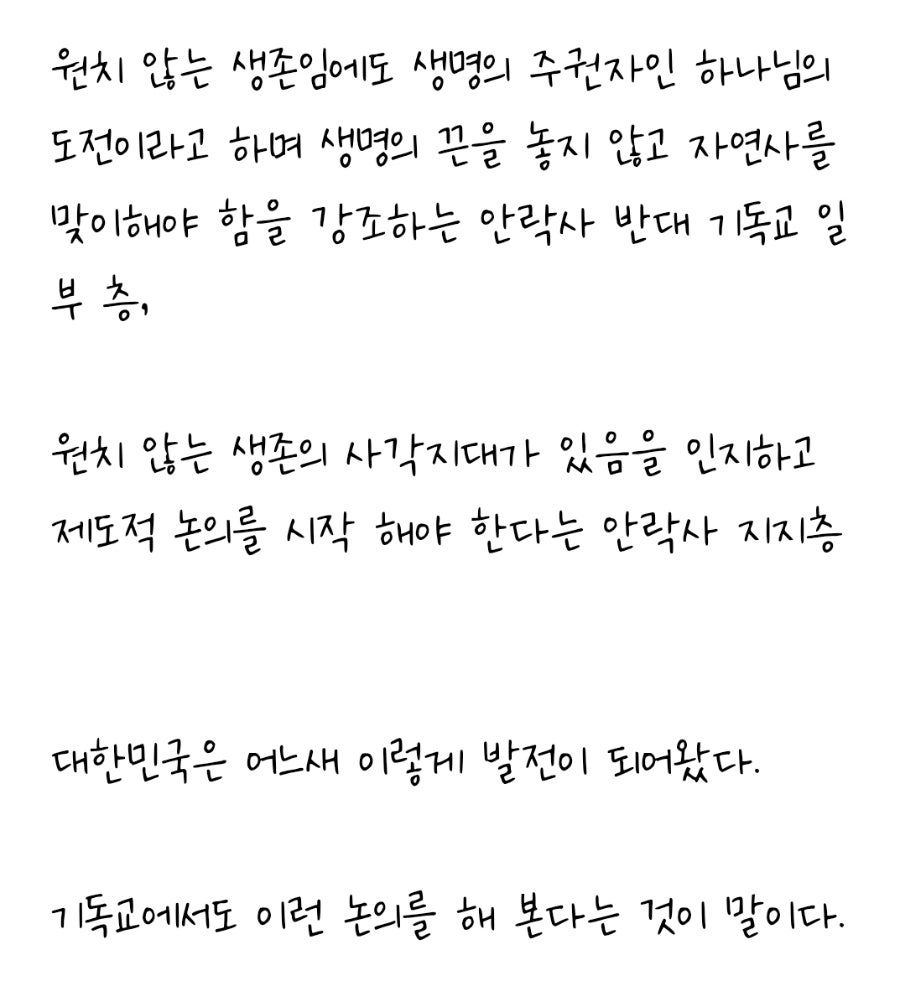 원치 않는 생존임에도 생명의 주권자인 하나님의
도전이라고 하며 생명의 끈을 놓지 않고 자연사를
맞이해야 함을 강조하는 안락사 반대 기독교 일
부 층,
원치 않는 생존의 사각지대가 있음을 인지하고
제도적 논의를 시작 해야 한다는 안락사 지지층
대한민국은 어느새 이렇게 발전이 되어왔다.
기독교에서도 이런 논의를 해 본다는 것이 말이다.